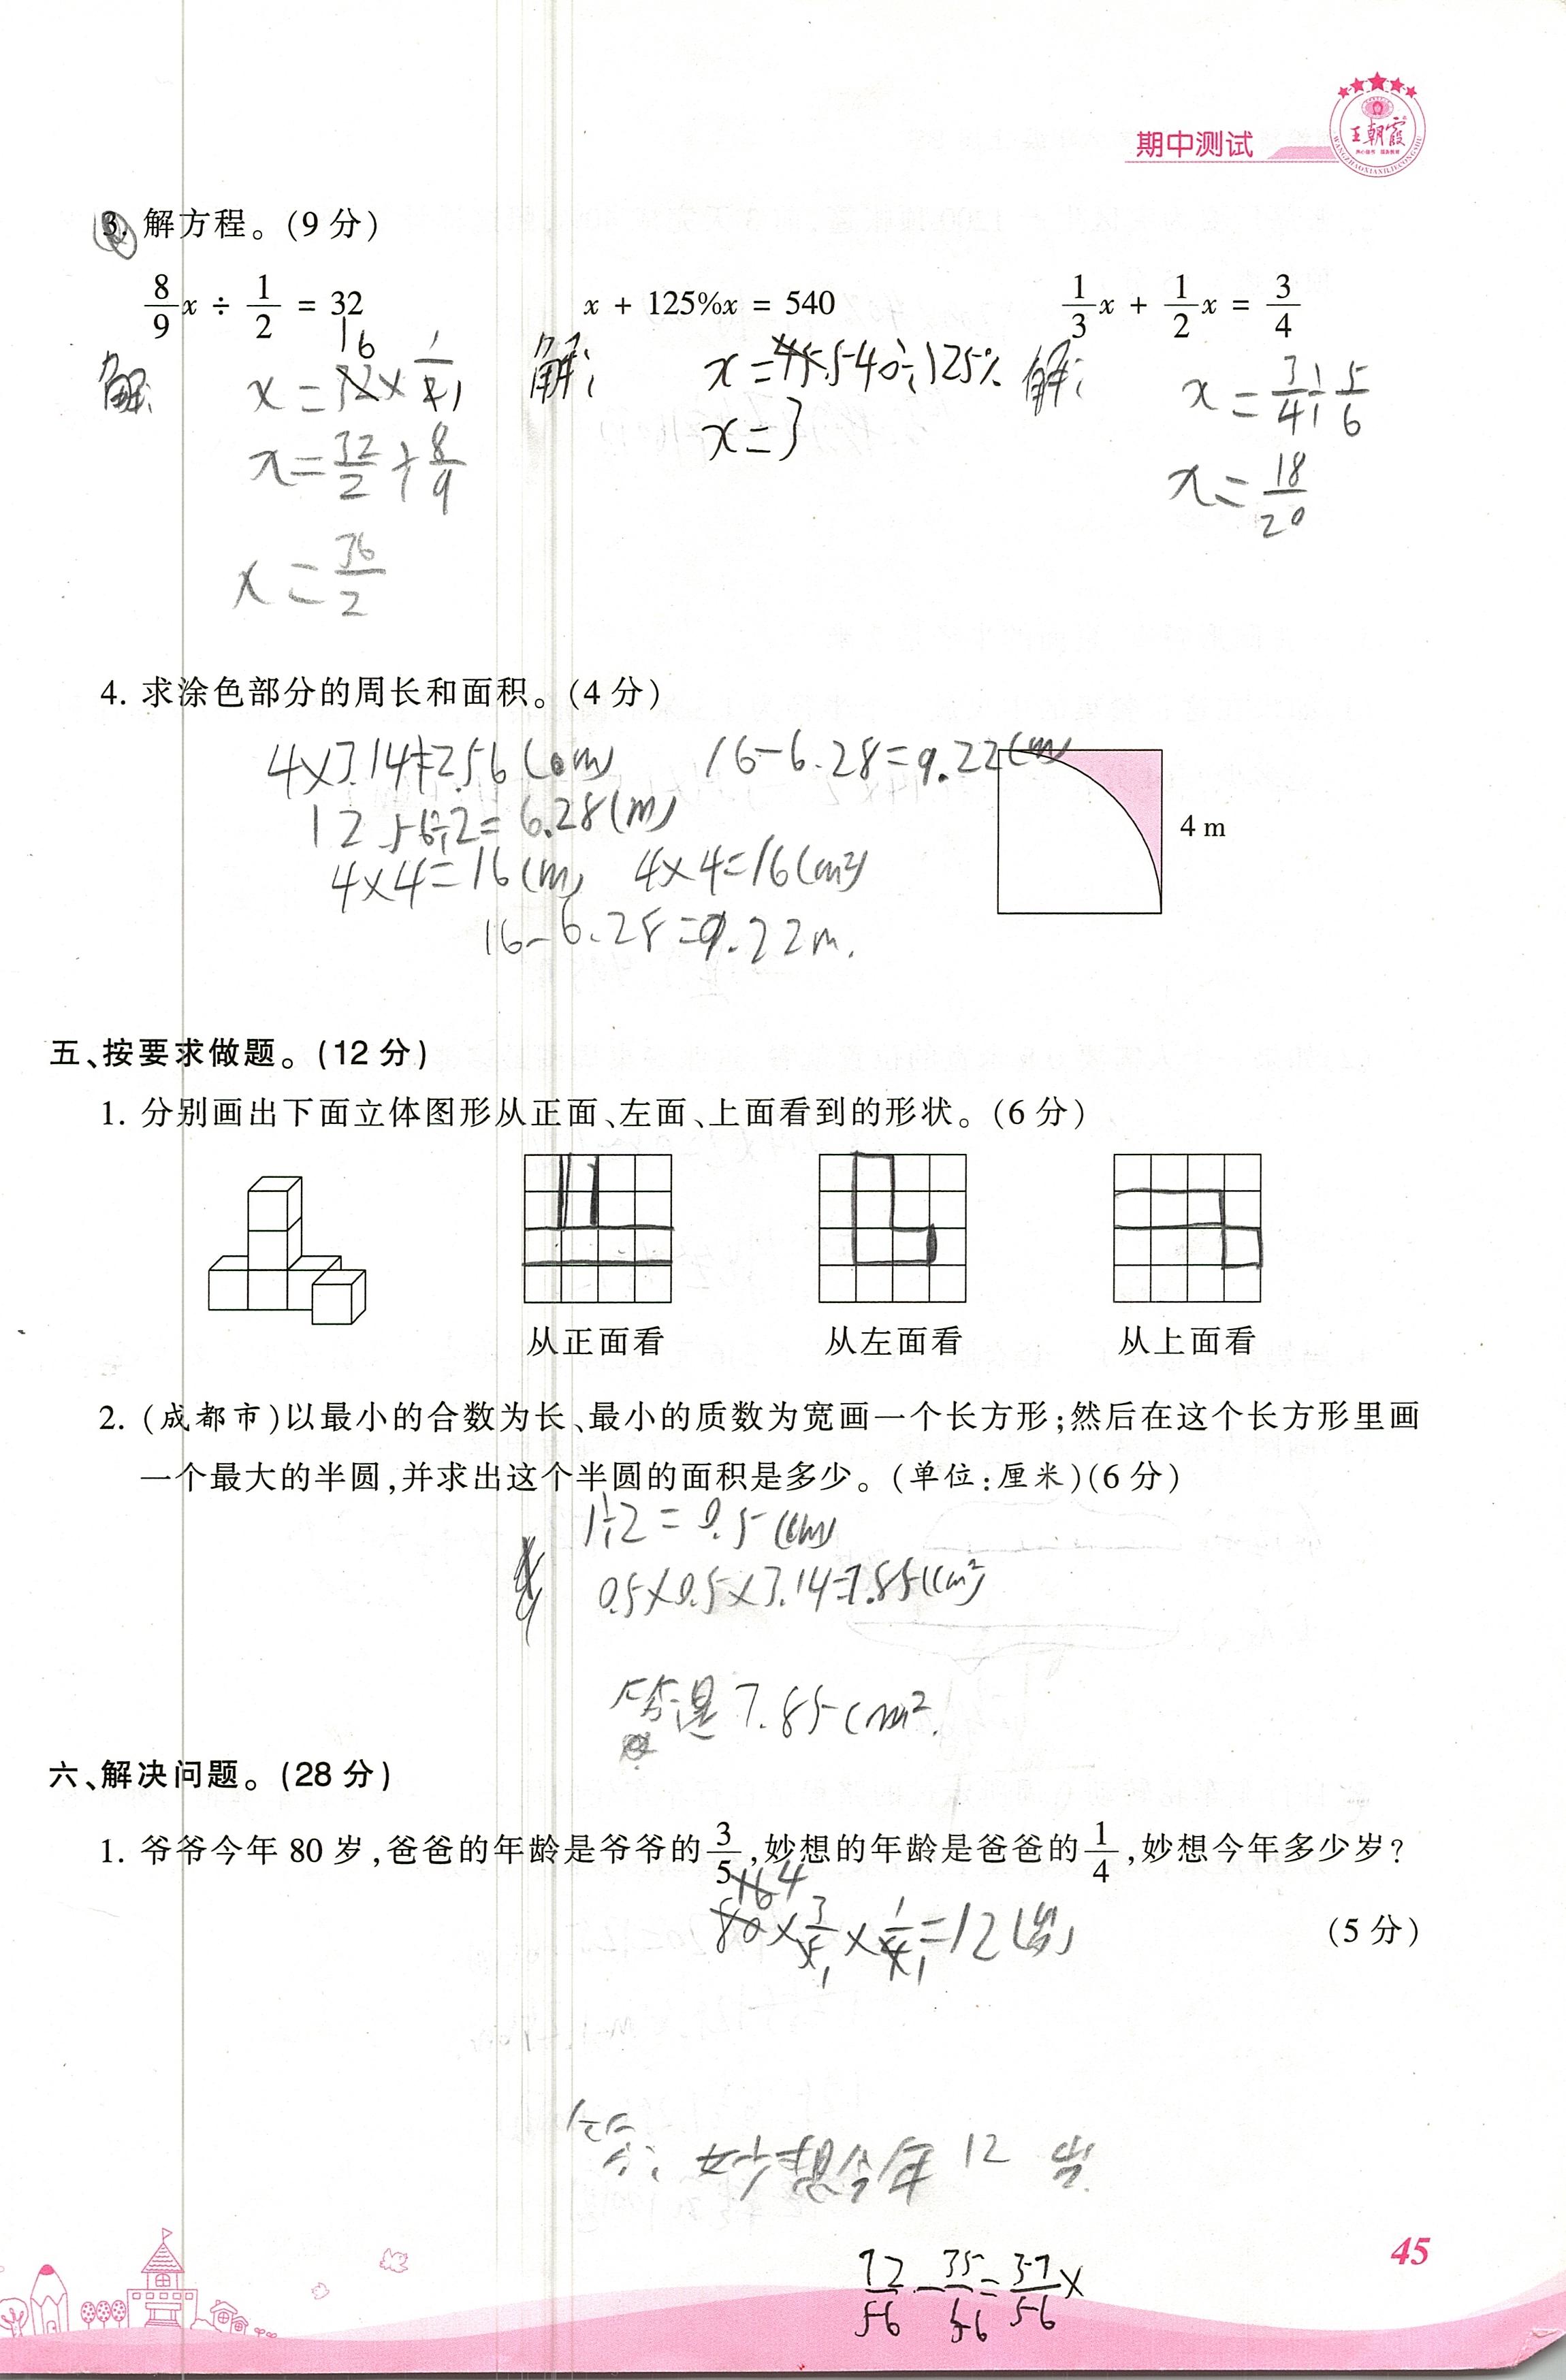 期中测试
王朝霞
3. 解方程。(9分)
8/9 x ÷ 1/2 = 32    x + 125%x = 540    1/3 x + 1/2 x = 3/4
16 1
解:    x = 32 × 1/2 1    解:    x = 540÷125%    解:    x = 3/4 ÷ 5/6
x = 32/2 ÷ 8/9    x = 3    x = 18/20
x = 36/2
4. 求涂色部分的周长和面积。(4分)
4×3.14=12.56(m)    16-6.28=9.22(m)
12.56÷2=6.28(m)
4 m
4×4=16(m)    4×4=16(m²)
16-6.28=9.22m.
五、按要求做题。(12分)
1. 分别画出下面立体图形从正面、左面、上面看到的形状。(6分)
从正面看    从左面看    从上面看
2. (成都市)以最小的合数为长、最小的质数为宽画一个长方形;然后在这个长方形里画
一个最大的半圆,并求出这个半圆的面积是多少。(单位:厘米)(6分)
1÷2=0.5(cm)
0.5×0.5×3.14=7.85(cm²)
答:是7.85cm².
六、解决问题。(28分)
1. 爷爷今年80岁,爸爸的年龄是爷爷的3/5,妙想的年龄是爸爸的1/4,妙想今年多少岁?
16 4
80×3/5×1/4=12(岁)
(5分)
答:妙想今年12岁
45
72/56-35/56=37/56x